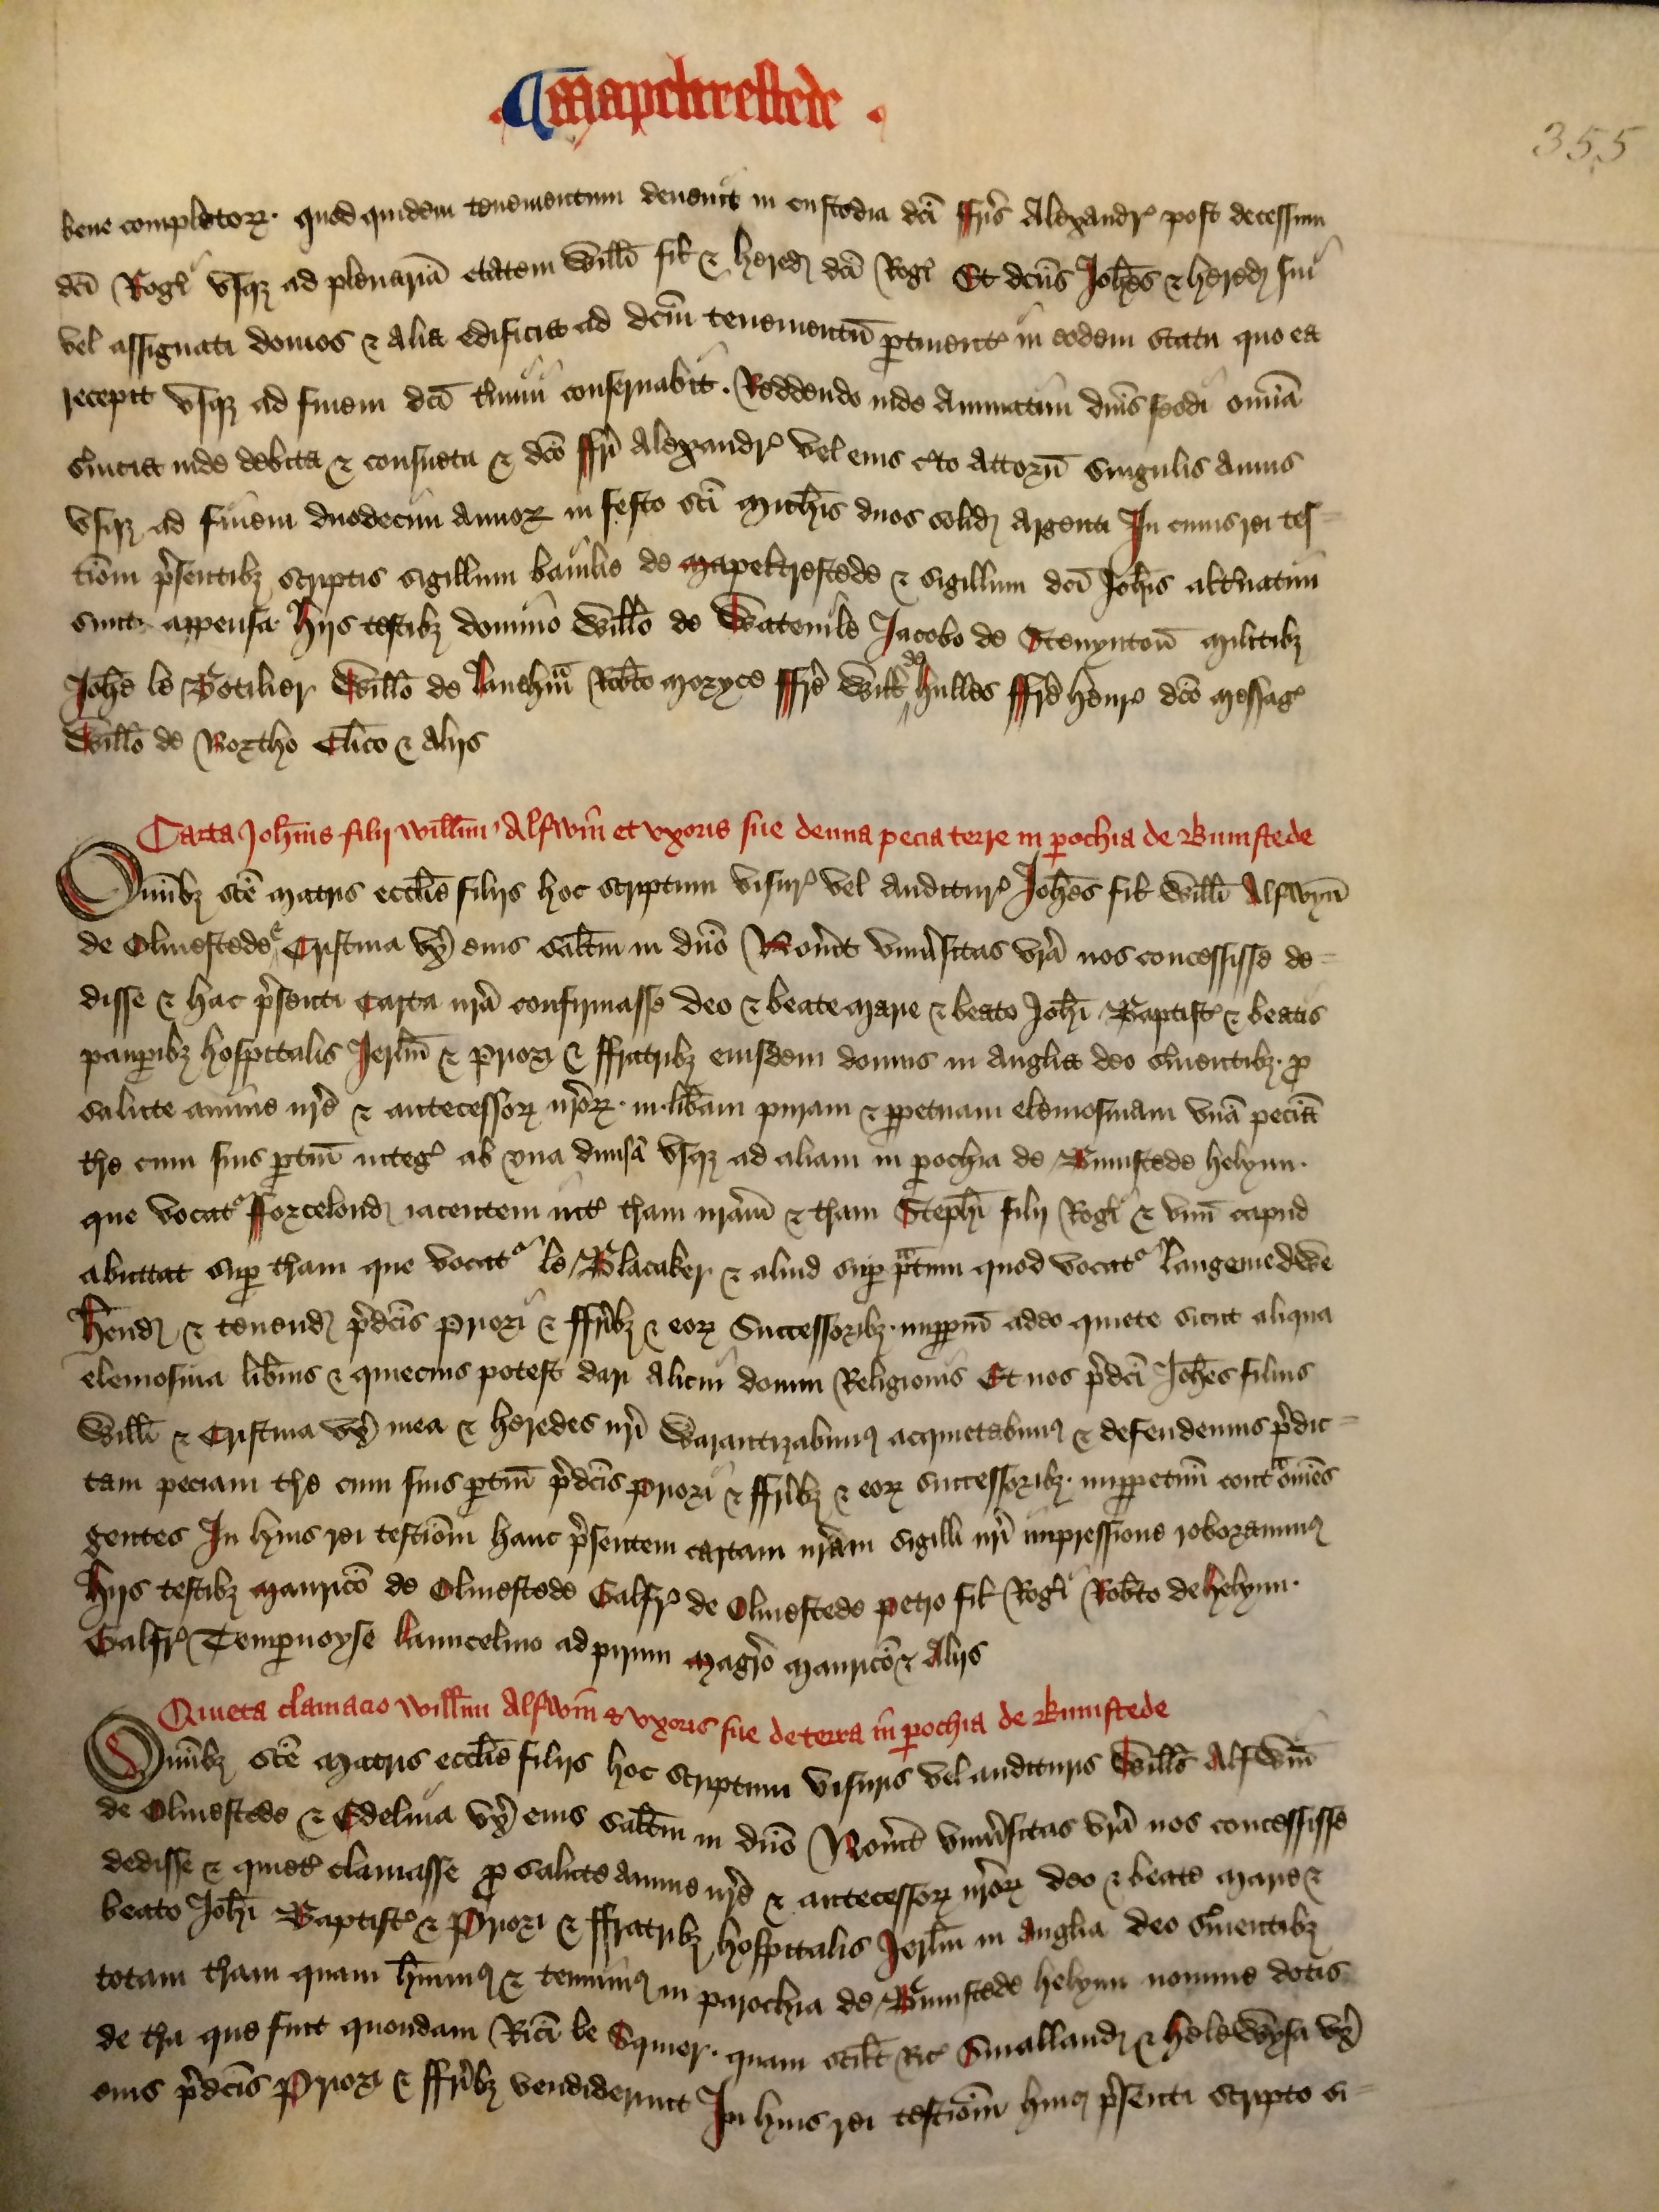 Mapeltrestede
355
bene completorꝝ. quod quidem tenementum devenit in custodia dc̄i ffr̄is Alexandr' post decessum
dc̄i Rogi' vsqꝫ ad plenariā etatem Willi̅ fil' & hered' dc̄i Rogi' Et dc̄us Joh̄es & hered' sui
vel assignati domos & alia edificia ad dc̄m tenementū ꝑtinent' in eodem statu quo ea
recepit vsqꝫ ad finem dc̄i t'mini conservabit. Reddendo inde Annuatim dn̄is feodi omīa
s'uicia inde debita & consueta & dc̄o ffr̄i Alexandr' vel eius c'to attorn̄ singulis annis
vsqꝫ ad finem duodecim annoꝝ in festo sc̄i Mich̄is duos solid' argenti In cuius rei tes-
tiōm p'sentibꝫ scriptis sigillum bailie de Mapeltrestede & sigillum dc̄i Joh̄is alt'natim
sunt appensa. Hijs testibꝫ domino Willo̅ de Wateuile Jacobo de Stenyntoū militibꝫ
Joh̄e le Botilier Willo̅ de Lanchm̄ Rob̄to Moryce ffr̄e Will' de Hulles ffr̄e Henr' dc̄o Messag'
Willo̅ de Northo Cl'ico & Alijs
Carta Joh̄nis filij Willm̄i Alfwin̄ et vxoris sue de una pecia terre in ꝑochia de Bumstede
Omībꝫ sc̄e Matris eccl̄ie filijs hoc scriptum visur' vel auditur' Joh̄es fil' Willi̅ Alfwyn̄
de Olmestede & Cristina vx' eius sal̄tm in dn̄o Nou'it vniu'sitas vr̄a nos concessisse de-
disse & hac p'senti Carta nr̄a confirmasse deo & beate Marie & beato Joh̄i Baptist' & beatis
pauꝑibꝫ hospitalis Jerlm̄ & Priori & ffratribꝫ eiusdem domus in Anglia deo s'uientibꝫ. ꝓ
salute anime nr̄e & antecessorꝝ nr̄orꝝ. in lib̄am puram & ꝑpetuam elemosinam vnā peciā
t're cum suis ꝑtin̄ integ' ab vna diuisa vsqꝫ ad aliam in ꝑochia de Bumstede Helyun.
que vocat' fforcelond' iacentem int' t'ram nr̄am & t'ram Steph̄i filij Rogi' & vnū capud
abuttat suꝑ t'ram que vocat' le Blacaker & aliud suꝑ p'tum quod vocat' Langemedwe
Hēnd' & tenend' p'dc̄is Priori & ffr̄ibꝫ & eorꝝ Successoribꝫ. imꝑpm̄ adeo quiete sicut aliqua
elemosina lib̄ius & quiecius potest dari Alicui domui Religionis Et nos p'dc̄i Joh̄es filius
Willi̅ & Cristina vx' mea & heredes nr̄i Warantizabimꝰ acquietabimꝰ & defendemus p'dic-
tam peciam t're cum suis ꝑtin̄ p'dc̄is Priori & ffr̄ibꝫ & eorꝝ successoribꝫ. imꝑpetuū cont' omēs
gentes In huius rei testiōm hanc p'sentem cartam nr̄am sigilli nr̄i impressione roborauimꝰ
Hijs testibꝫ Mauricō de Olmestede Galfr' de Olmestede Petro fil' Rogi' Rob̄to de Helyun.
Galfr' Tempernoyse Launcelino ad pirum Magr̄o Mauricō & Alijs
Quieta clamacio Willm̄i Alfwin̄ & vxoris sue de terra in ꝑochia de Bumstede
Omībꝫ sc̄e Matris eccl̄ie filijs hoc scriptum visuris vel audituris Willo̅s Alfwin̄
de Olmestede & Edelina vx' eius sal̄tm in dn̄o Nou'it vniu'sitas vr̄a nos concessisse
dedisse & quiet' clamasse ꝓ salute anime nr̄e & antecessorꝝ nr̄orꝝ deo & beate Marie &
beato Joh̄i Baptist' & Priori & ffratribꝫ hospitalis Jerlm̄ in Anglia deo s'uientibꝫ
totam t'ram quam h̄uimꝰ & tenuimꝰ in parochia de Bumstede Helyun nomine dotis
de t'ra que fuit quondam Ric̄i le Squier. quam scil̄t Ric' Smalland' & Helewysa vx'
eius p'dc̄is Priori & ffr̄ibꝫ vendiderunt In huius rei testiōm huic p'senti scripto si-